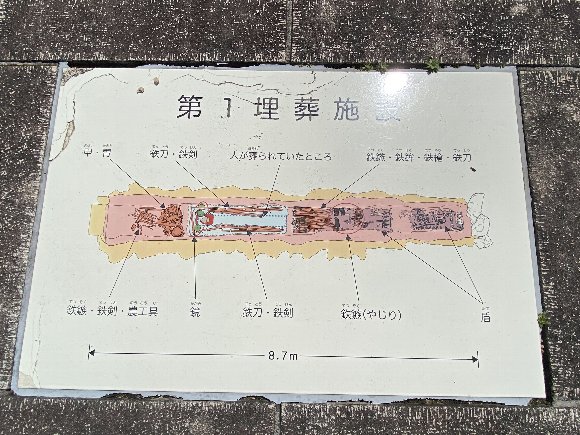 第1埋葬施設
甲冑
鉄刀・鉄剣
人が葬られていたところ
鉄鏃・鉄鉾・鉄槍・鉄刀
鉄鏃・鉄剣・農工具
鏡
鉄刀・鉄剣
鉄鏃(やじり)
盾
8.7m